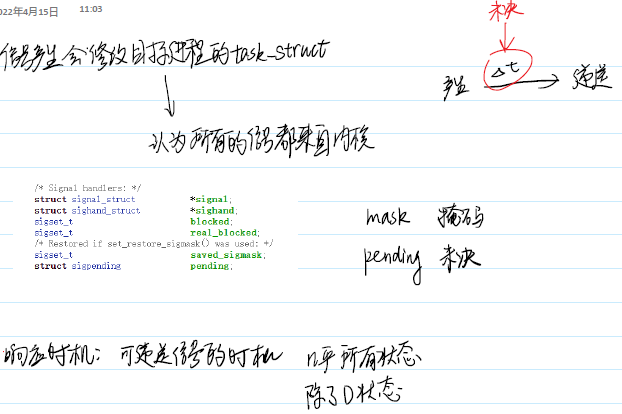 022年4月15日 11:03
未决
信号产生会修改目标进程的task_struct
产生 Δt 递送
认为所有的信号都来自内核
/* Signal handlers: */
struct signal_struct *signal;
struct sighand_struct *sighand;
sigset_t blocked;
sigset_t real_blocked;
/* Restored if set_restore_sigmask() was used: */
sigset_t saved_sigmask;
struct sigpending pending;
mask 掩码
pending 未决
响应时机: 可递送信号的时机 几乎所有状态
除了D状态